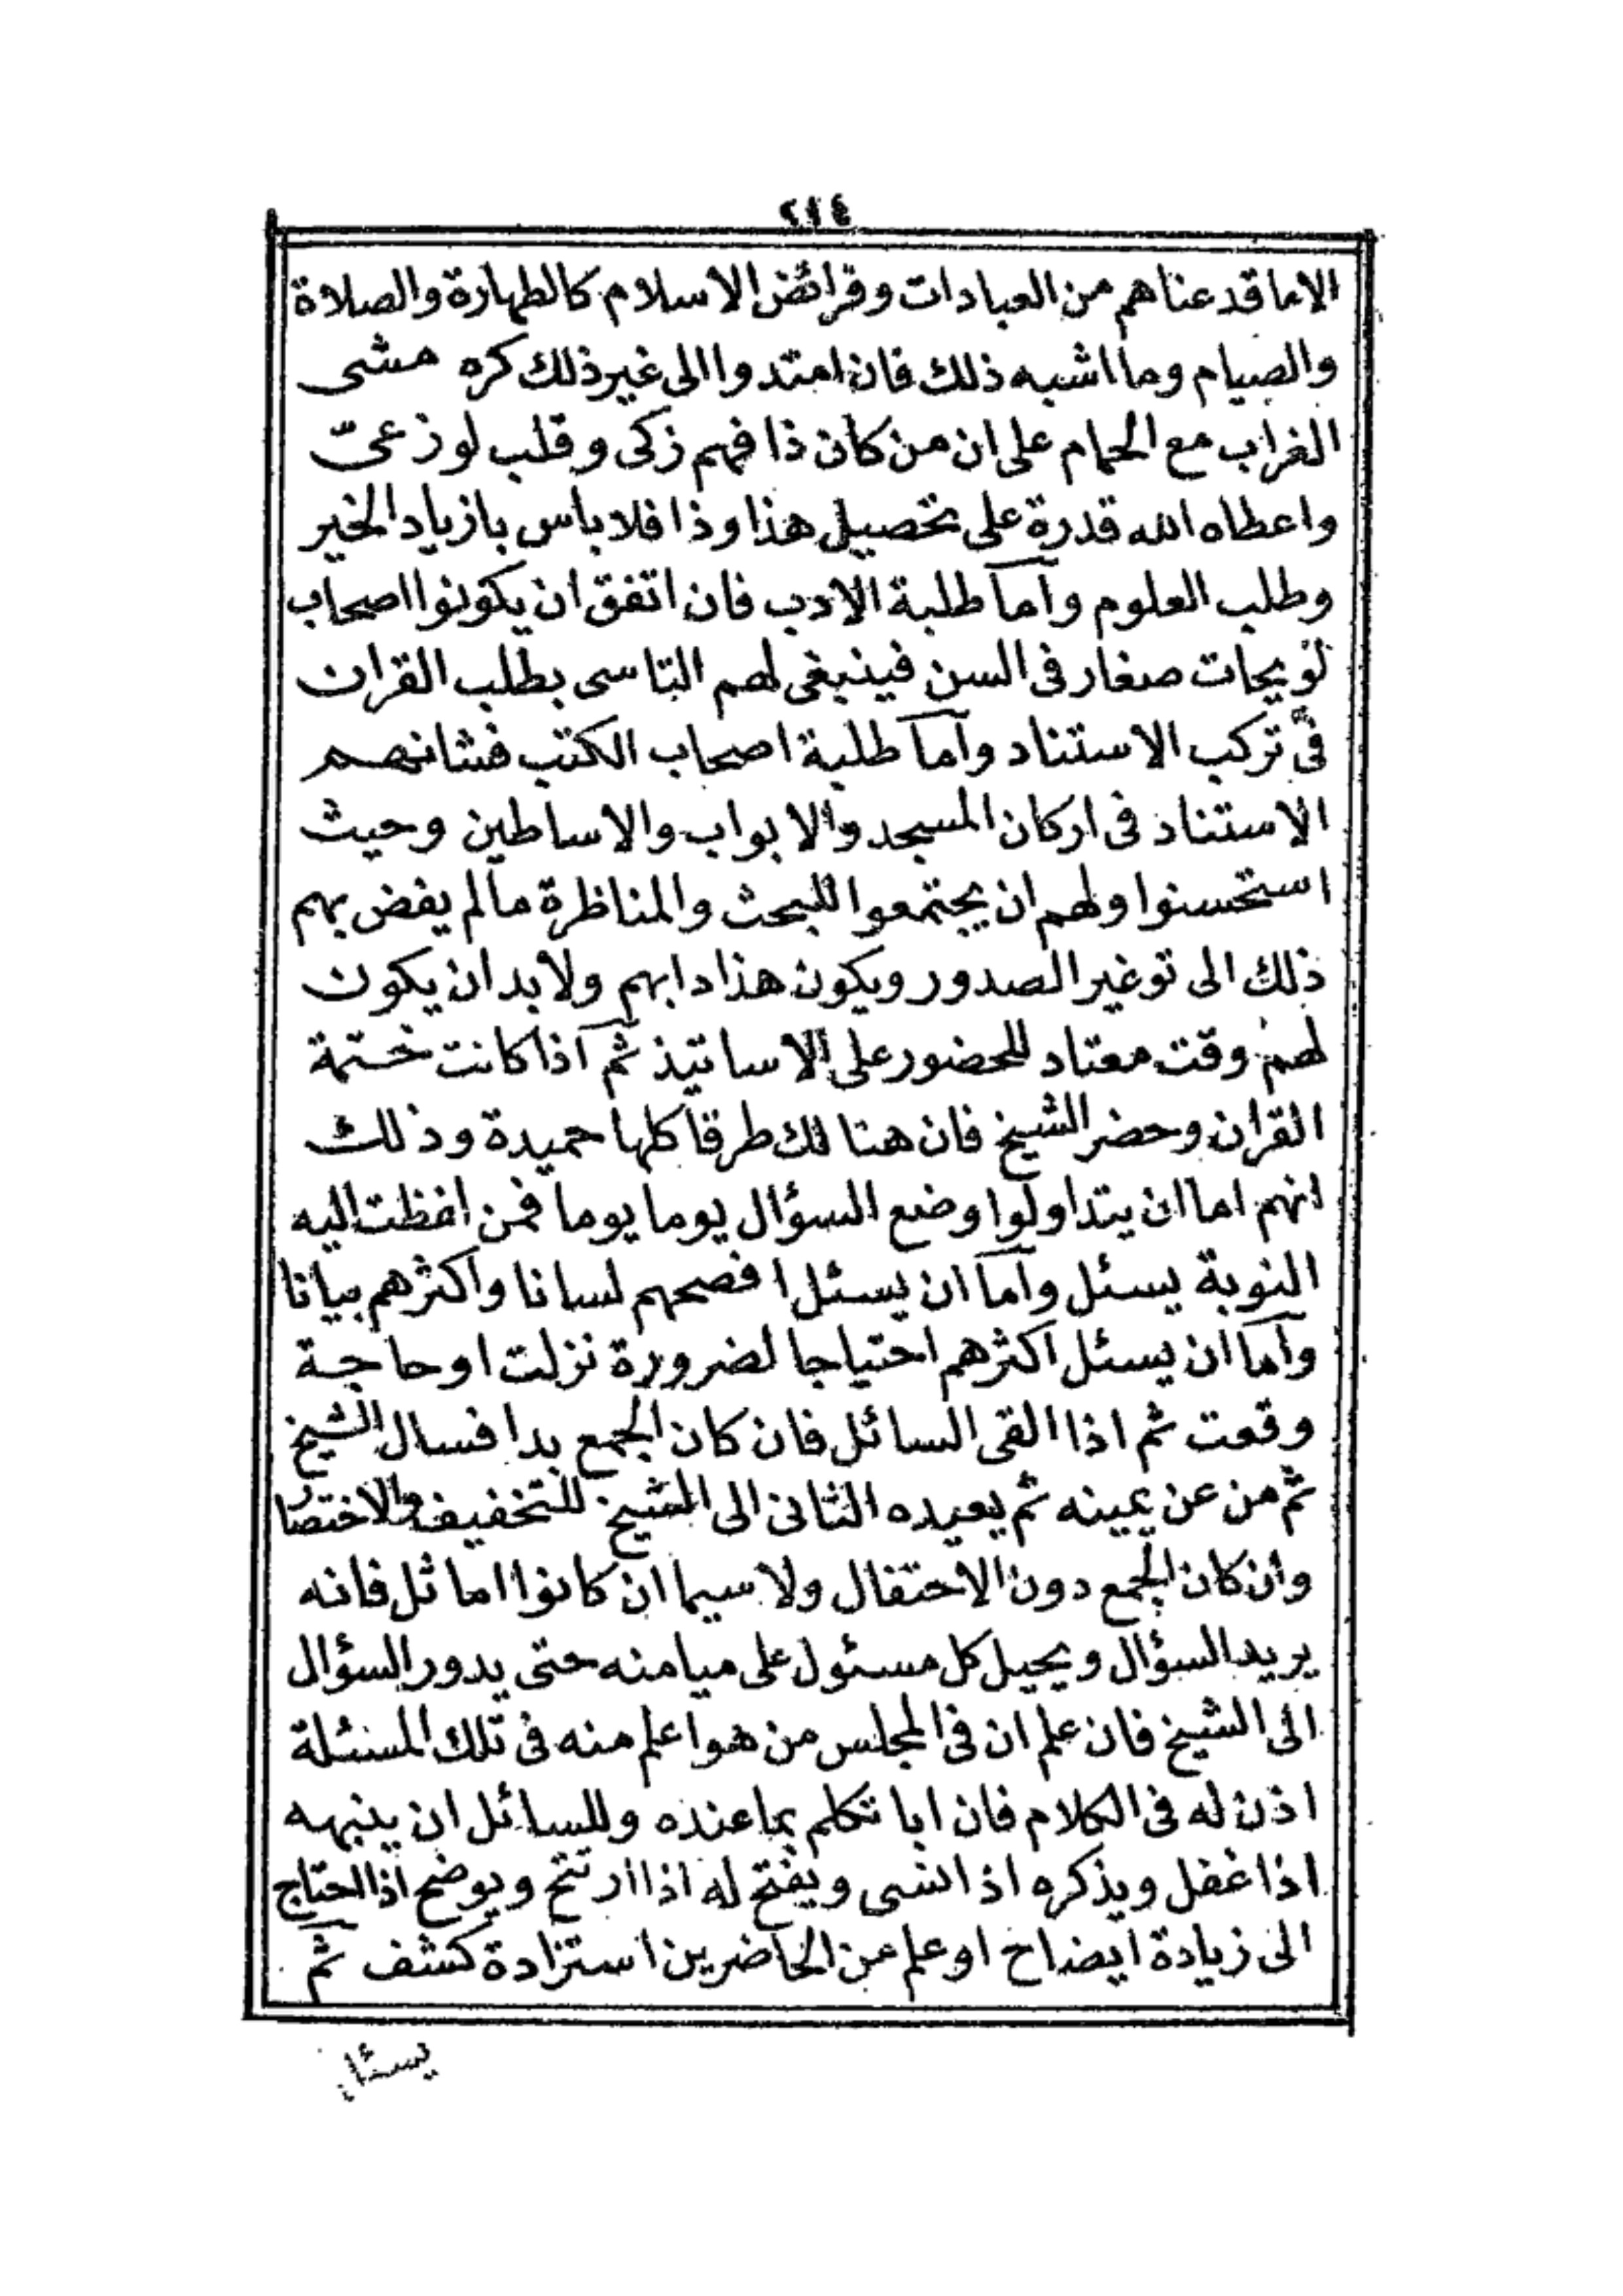 ٢١٤
الاما قد عناهم من العبادات وفرائض الاسلام كالطهارة والصلاة
والصيام وما اشبه ذلك فان امتدوا الى غير ذلك كره مشى
الغراب مع الحمام على ان من كان ذا فهم زكى وقلب لوذعىّ
واعطاه الله قدرة على تحصيل هذا وذا فلا باس بازياد الخير
وطلب العلوم وآما طلبة الادب فان اتفق ان يكونوا اصحاب
لويحات صغار فى السن فينبغى لهم التاسى بطلب القران
فى تركب الاستناد وآما طلبة اصحاب الكتب فشانهم
الاستناد فى اركان المسجد والابواب والاساطين وحيث
استحسنوا ولهم ان يجتمعوا للبحث والمناظرة مالم يفض بهم
ذلك الى توغير الصدور ويكون هذا دابهم ولا بد ان يكون
لهم وقت معتاد للحضور على الاساتيذ ثم آذا كانت ختمة
القران وحضر الشيخ فان هنا لك طرقا كلها حميدة وذلك
انهم اما ان يتداولوا وضع السؤال يوما يوما فمن افظت اليه
النوبة يسئل وآما ان يسئل افصحهم لسانا واكثرهم بيانا
وآما ان يسئل اكثرهم احتياجا لضرورة نزلت او حاجة
وقعت ثم اذا القى السائل فان كان الجمع بدا فسال الشيخ
ثم من عن يمينه ثم يعيده الثانى الى الشيخ للتخفيف والاختصار
وان كان الجمع دون الاحتفال ولا سيما ان كانوا اماثل فانه
يريد السؤال ويحيل كل مسئول على ميامنه حتى يدور السؤال
الى الشيخ فان علم ان فى المجلس من هو اعلم منه فى تلك المسئلة
اذن له فى الكلام فان ابا تكلم بما عنده وللسائل ان ينبهه
اذا غفل ويذكره اذا نسى ويفتح له اذا ارتتج ويوضح اذا احتاج
الى زيادة ايضاح او علم عن الحاضرين استزادة كشف ثم
يسئل